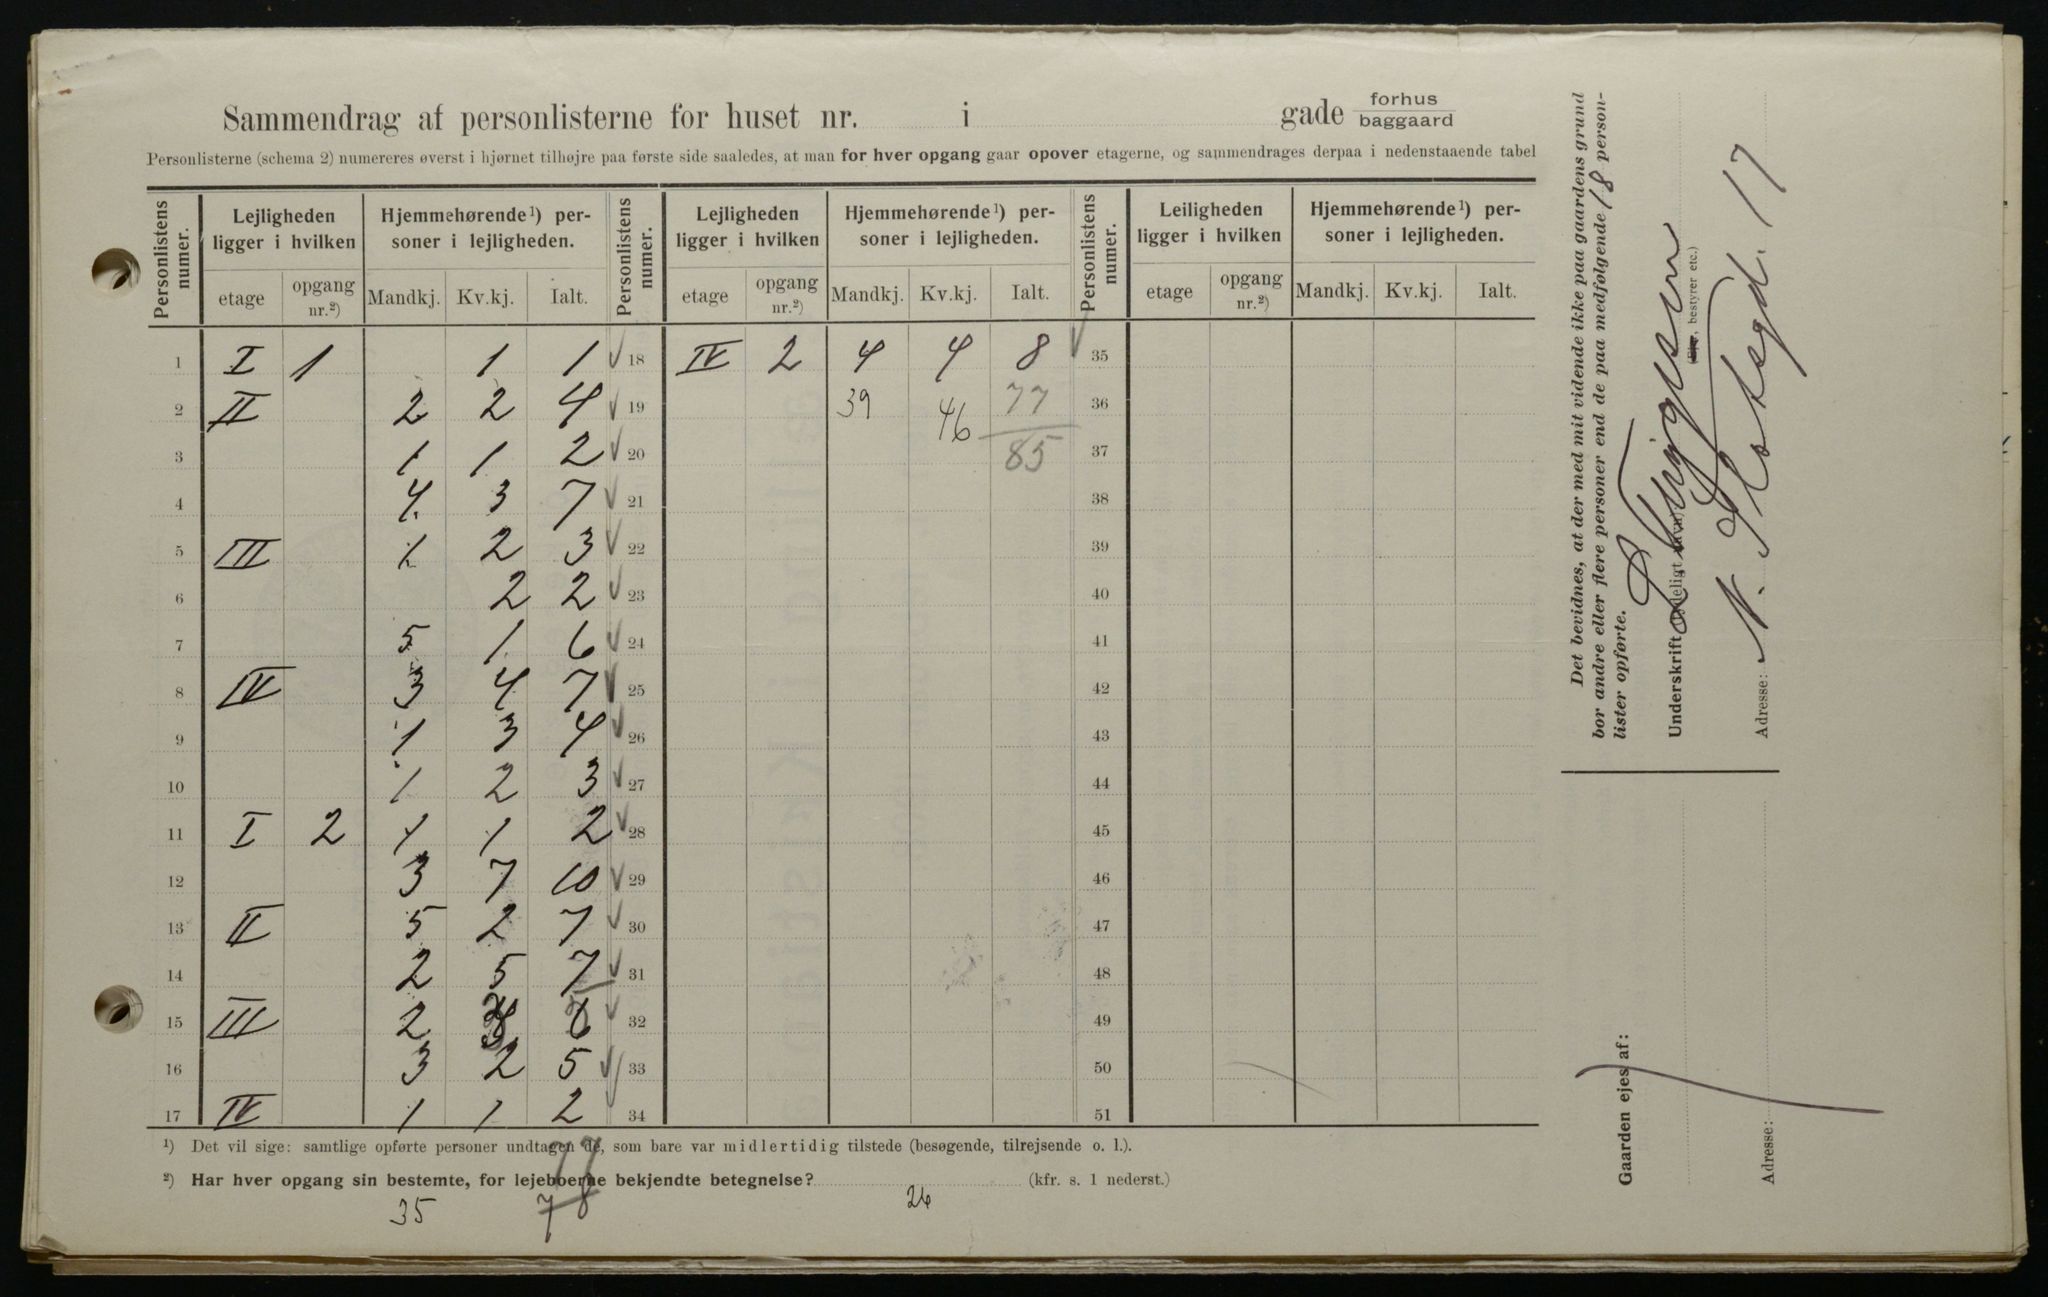 Sammendrag af personlisterne for huset nr. i gade forhus baggaard
Personlisterne (schema 2) numereres øverst i hjørnet tilhøjre paa første side saaledes, at man for hver opgang gaar opover etagerne, og sammendrages derpaa i nedenstaaende tabel
Personlistens numer. Lejligheden ligger i hvilken Hjemmehørende¹) personer i lejligheden. Personlistens numer. Lejligheden ligger i hvilken Hjemmehørende¹) personer i lejligheden. Personlistens numer. Leiligheden ligger i hvilken Hjemmehørende¹) personer i lejligheden.
etage opgang nr.²) Mandkj. Kv.kj. Ialt. etage opgang nr.²) Mandkj. Kv.kj. Ialt. etage opgang nr.²) Mandkj. Kv.kj. Ialt.
1 I 1 1 1 18 IV 2 4 4 8 35
2 II 2 2 4 19 39 46 77 36
3 1 1 2 20 85 37
4 4 3 7 21 38
5 III 1 2 3 22 39
6 2 2 23 40
7 5 1 6 24 41
8 IV 3 4 7 25 42
9 1 3 4 26 43
10 1 2 3 27 44
11 I 2 1 1 2 28 45
12 3 7 10 29 46
13 II 5 2 7 30 47
14 2 5 7 31 48
15 III 2 3 32 49
16 3 2 5 33 50
17 IV 1 1 2 34 51
¹) Det vil sige: samtlige opførte personer undtagen de, som bare var midlertidig tilstede (besøgende, tilrejsende o. l.).
77
²) Har hver opgang sin bestemte, for lejeboerne bekjendte betegnelse? (kfr. s. 1 nederst.)
35 78 26
Det bevidnes, at der med mit vidende ikke paa gaardens grund
bor andre eller flere personer end de paa medfølgende 18 person-
lister opførte.
Underskrift (tydeligt navn):
(Ejer, bestyrer etc.)
Adresse: N. Slotsgd. 17
Gaarden ejes af:
Adresse: